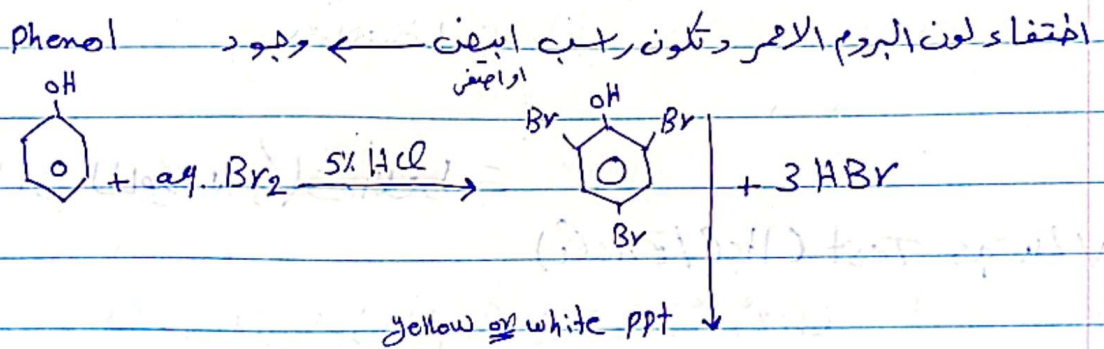 اختفاء لون البروم الاحمر وتكون راسب ابيض ← وجود Phenol
او اصفر
OH
OH
Br Br
+ aq. Br2 5% HCl → + 3 HBr
Br
yellow or white ppt ↓